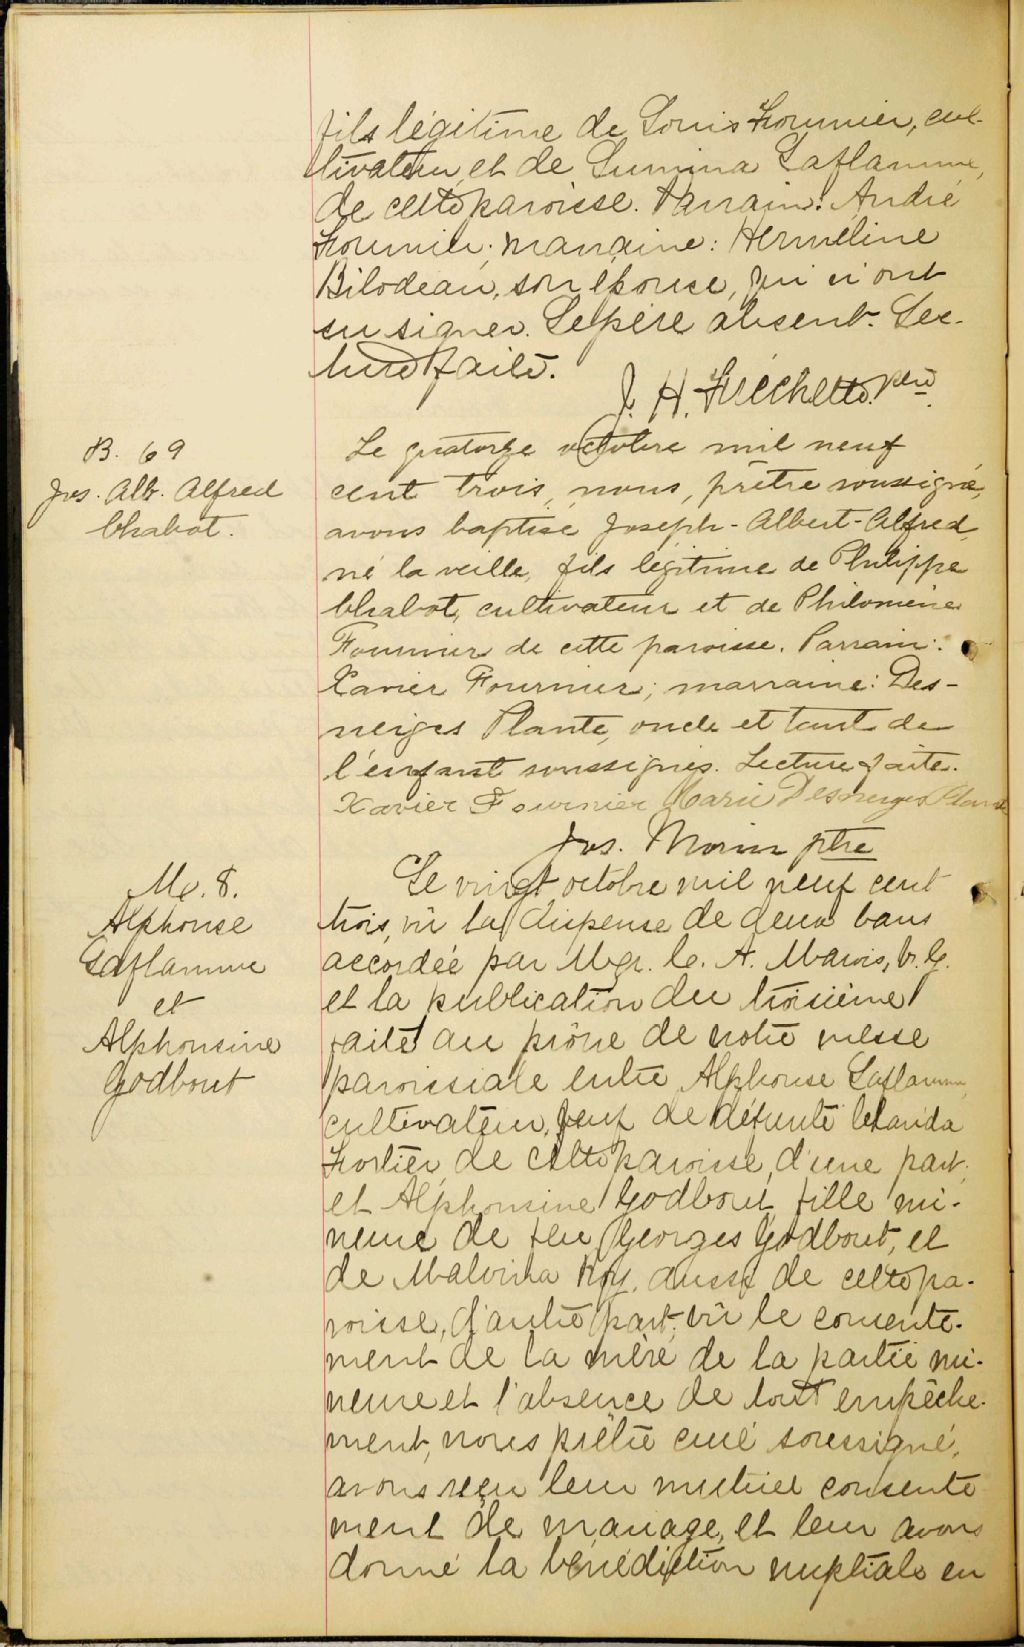 fils légitime de Louis Fournier, cul-
tivateur, et de Lumina Laflamme,
de cette paroisse. Parrain: André
Fournier; marraine: Herméline
Bilodeau, son épouse, qui n'ont
su signer. Le père absent. Lec-
ture faite.
J. H. Fréchette. ptre.
B. 69
Jos. Alb. Alfred
Chabot.
Le quatorze octobre mil neuf
cent trois, nous, prêtre soussigné,
avons baptisé Joseph-Albert-Alfred,
né la veille, fils légitime de Philippe
Chabot, cultivateur et de Philomène
Fournier de cette paroisse. Parrain:
Xavier Fournier; marraine: Des-
neiges Plante, oncle et tante de
l'enfant soussignés. Lecture faite.
Xavier Fournier Marie Desneiges Plante
Jos. Morin ptre
M. 8.
Alphonse
Laflamme
et
Alphonsine
Godbout
Le vingt octobre mil neuf cent
trois, vû la dispense de deux bans
accordée par Mgr. C. A. Marois, V. G.
et la publication du troisième
faite au prône de notre messe
paroissiale entre Alphonse Laflamme,
cultivateur, veuf de défunte
Fortier, de cette paroisse, d'une part;
et Alphonsine Godbout, fille mi-
neure de feu Georges Godbout, et
de Malvina Roy, aussi de cette pa-
roisse, d'autre part; vû le consente-
ment de la mère de la partie mi-
neure et l'absence de tout empêche-
ment, nous prêtre curé soussigné,
avons reçu leur mutuel consente
ment de mariage, et leur avons
donné la bénédiction nuptiale en